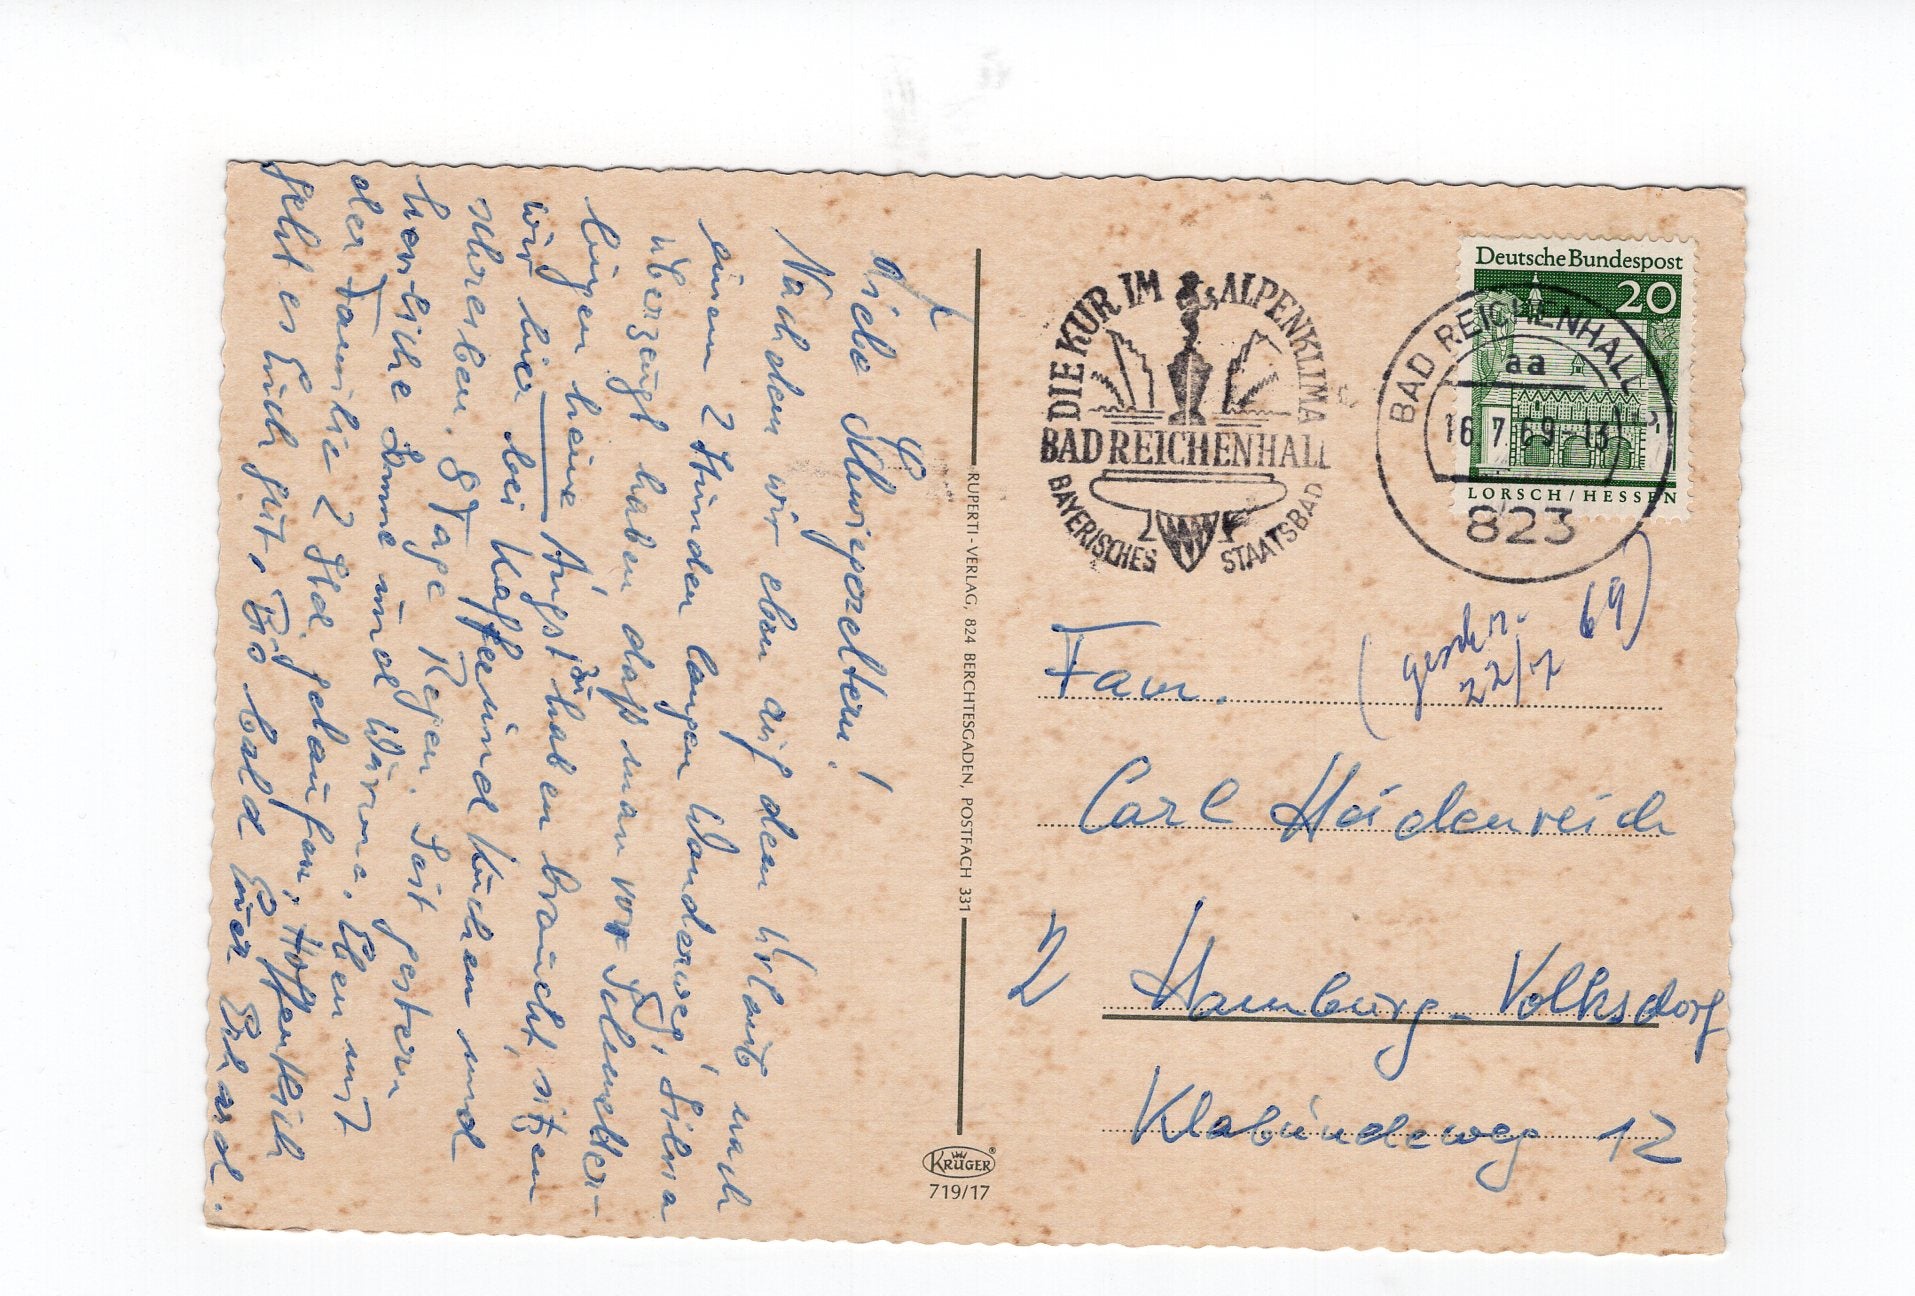 Liebe Schwiegereltern!
Nachdem wir eben auf dem Urlaub nach
einem 2 Stunden langen Wanderweg, Silvia
überzeugt haben daß man vor Schmetter-
lingen keine Angst zu haben braucht, sitzen
wir hier bei Kaffee und Kuchen und
schreiben. 8 Tage Regen. Seit gestern
herrliche Sonne und Wärme. Eben mit
der Familie 2 Std. gelaufen. Hoffentlich
geht es Euch gut. Bis bald Euer Erhard.
RUPERTI-VERLAG, 824 BERCHTESGADEN, POSTFACH 331
KRÜGER®
719/17
DIE KUR IM ALPENKLIMA
BAD REICHENHALL
BAYERISCHES STAATSBAD
Deutsche Bundespost
20
LORSCH/HESSEN
BAD REICHENHALL
aa
16.7.69-13
823
(geschr. 22/7 69)
Fam.
Carl Heidenreich
2 Hamburg-Volksdorf
Klabundeweg 12